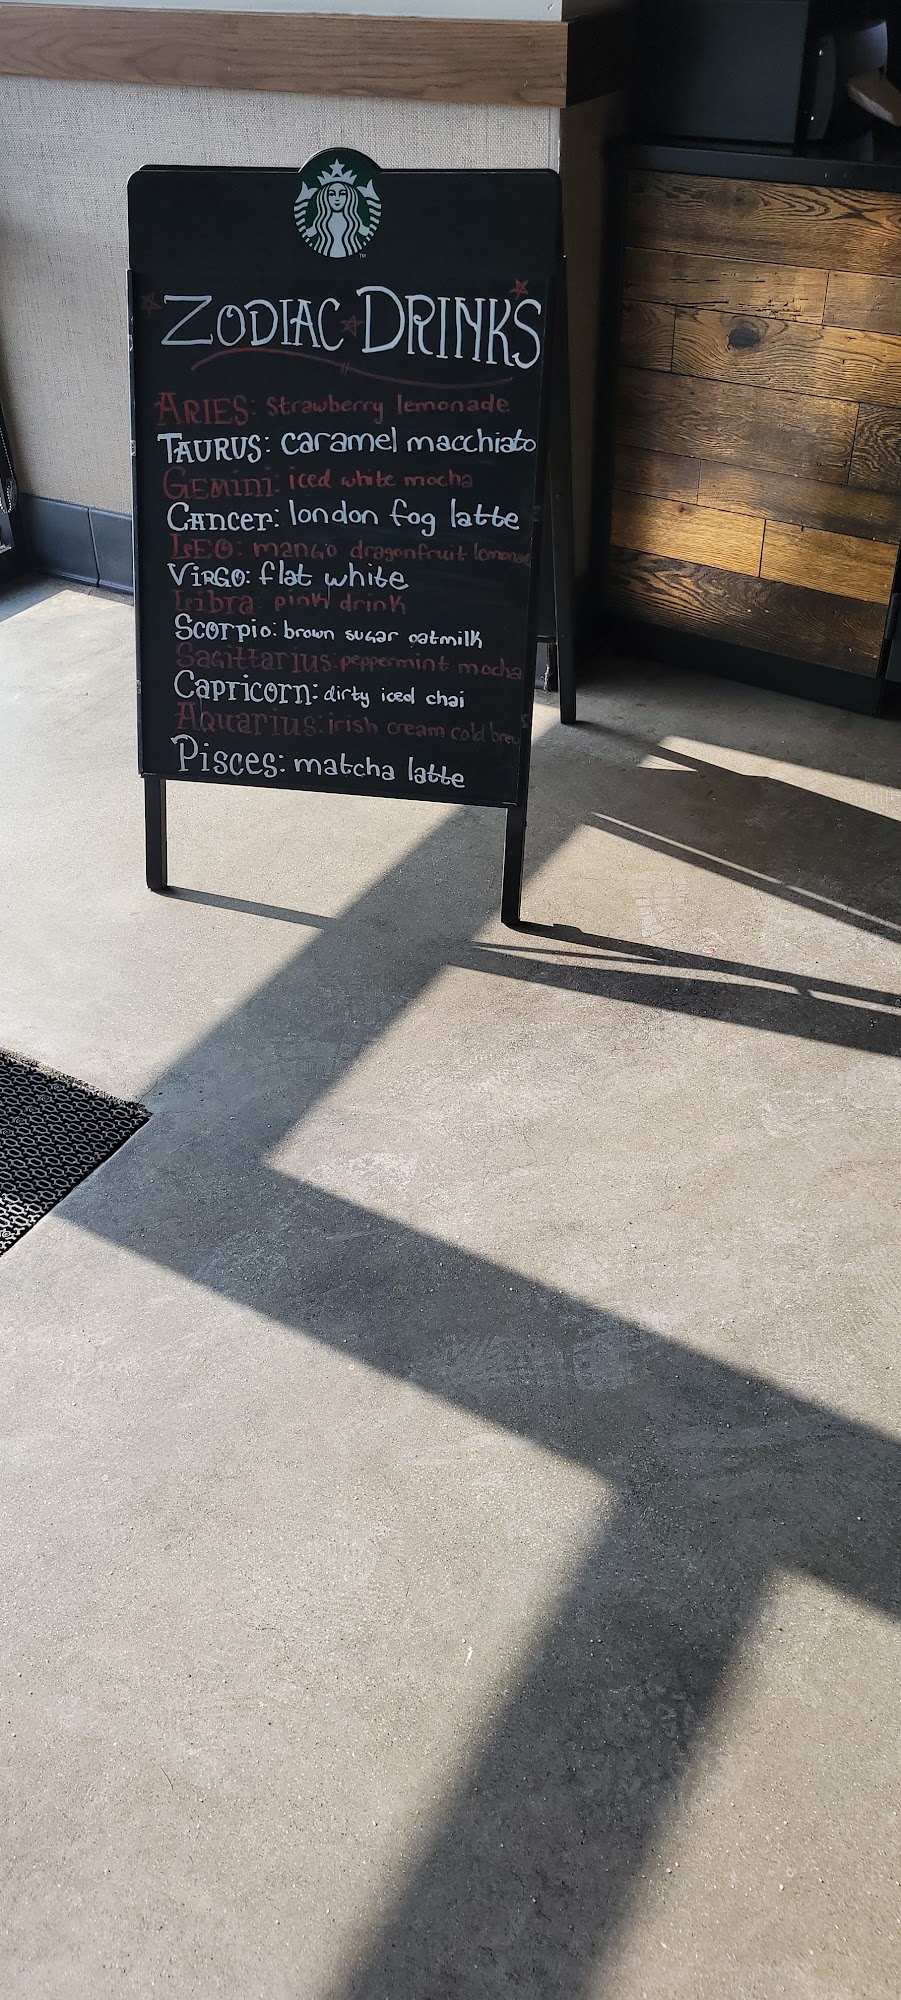 ZODIAC DRINKS
ARIES: strawberry lemonade
TAURUS: caramel macchiato
GEMINI: iced white mocha
CANCER: london fog latte
LEO: mango dragonfruit lemonade
VIRGO: flat white
Libra: pink drink
Scorpio: brown sugar oatmilk
Sagittarius: peppermint mocha
Capricorn: dirty iced chai
Aquarius: irish cream cold brew
Pisces: matcha latte